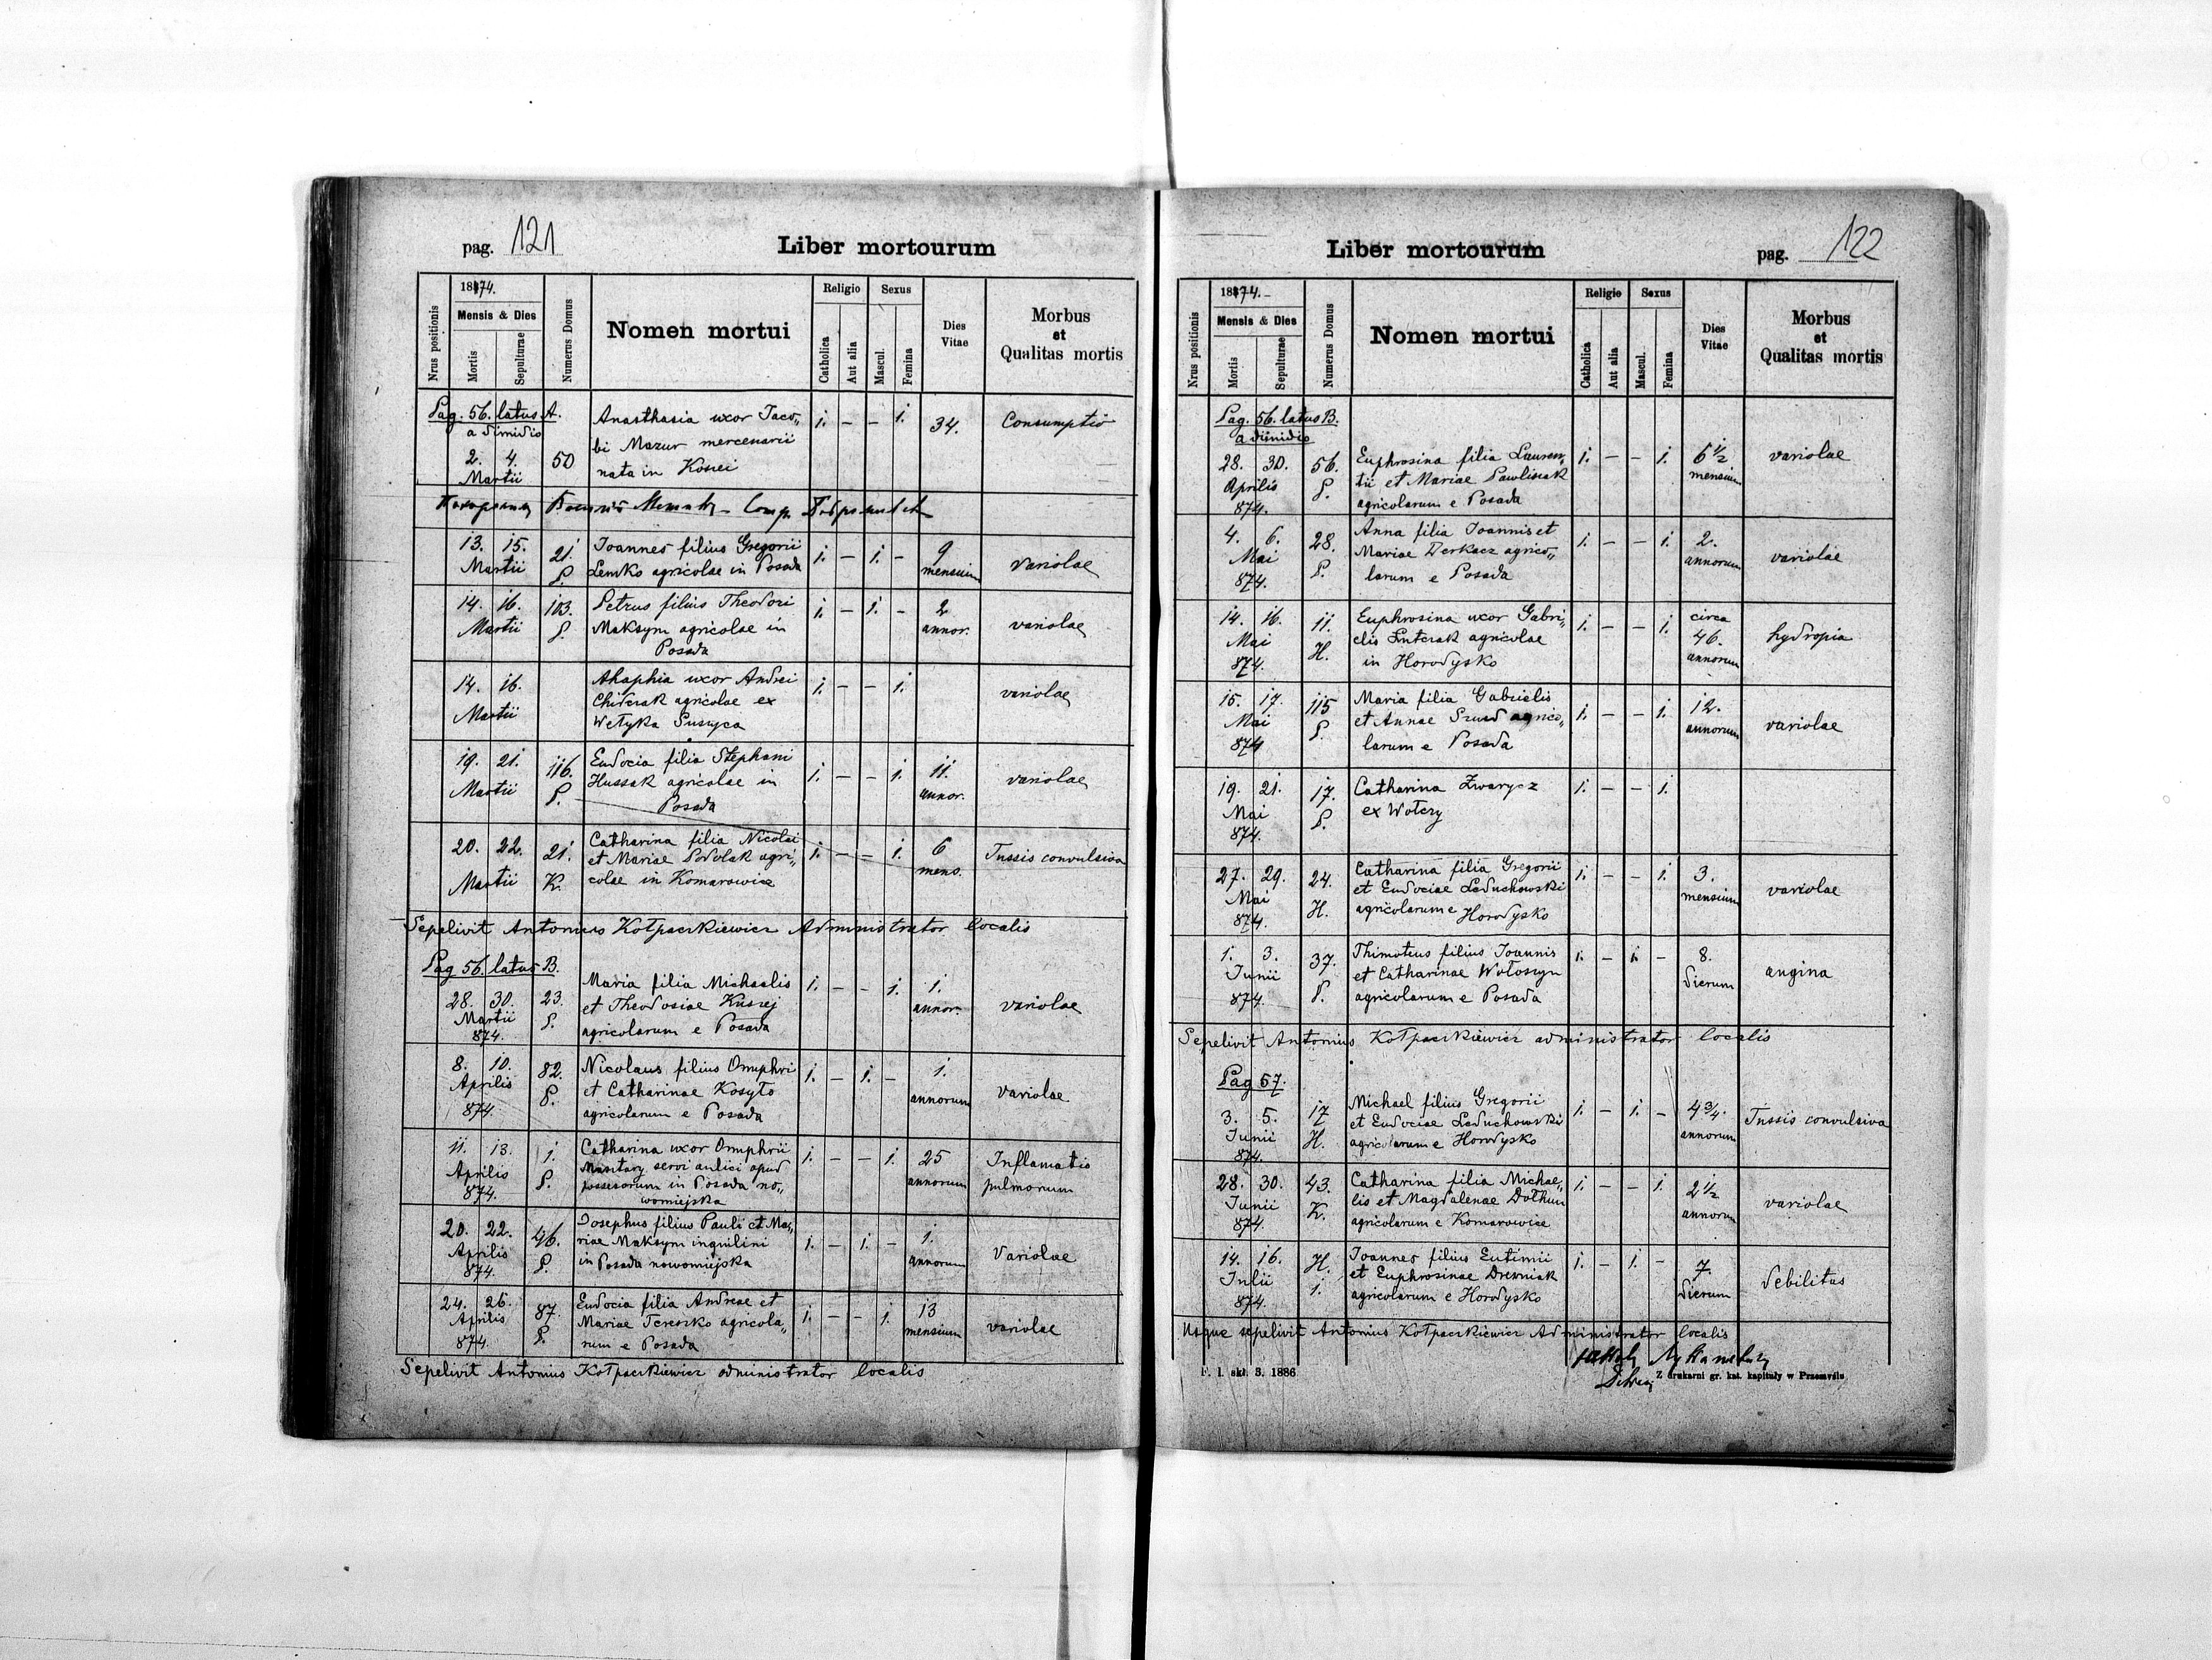 pag. 121
Liber mortuorum
Nrus positionis
1874.
Mensis & Dies
Mortis
Sepulturae
Numerus Domus
Nomen mortui
Religio
Catholica
Aut alia
Sexus
Mascul.
Femina
Dies Vitae
Morbus
et
Qualitas mortis
Pag. 56. latus A.
a dimidio
2. 4.
Martii
50
Anasthasia uxor Jaco„
bi Mazur mercenarii
nata in Koniei
1. — — 1.
34.
Consumptio
13. 15.
Martii
21.
P.
Joannes filius Gregorii
Lemko agricolae in Posada
1. — 1. —
9
mensium
variolae
14. 16.
Martii
103.
P.
Petrus filius Theodori
Maksym agricolae in
Posada
1. — 1. —
2
annor.
variolae
14. 16.
Martii
Ahaphia uxor Andrei
Chiderak agricolae ex
Wełyka Suszyca
1. — — 1.
variolae
19. 21.
Martii
116.
P.
Eudocia filia Stephani
Hussak agricolae in
Posada
1. — — 1.
11.
annor.
variolae
20. 22.
Martii
21.
K.
Catharina filia Nicolai
et Mariae Podolak agri„
colae in Komarowice
1. — — 1.
6
mens.
Tussis convulsiva
Sepelivit Antonius Kołpaczkiewicz Administrator localis
Pag 56. latus B.
28. 30.
Martii
874.
23.
P.
Maria filia Michaelis
et Theodosiae Kuszej
agricolarum e Posada
1. — — 1.
1.
annor.
variolae
8. 10.
Aprilis
874.
82.
P.
Nicolaus filius Omphri
et Catharinae Kosyło
agricolarum e Posada
1. — 1. —
1.
annorum
variolae
11. 13.
Aprilis
874.
1.
P.
Catharina uxor Omphrii
servi aulici apud
possesorum in Posada no„
womiejska
1. — — 1.
25
annorum
Inflamatio
pulmonum
20. 22.
Aprilis
874.
46.
P.
Josephus filius Pauli et Ma„
riae Maksym inquilini
in Posada nowomiejska
1. — 1. —
1.
annorum
Variolae
24. 26.
Aprilis
874.
87.
P.
Eudocia filia Andreae et
Mariae Tereszko agricola„
rum e Posada
1. — — 1.
13
mensium
variolae
Sepelivit Antonius Kołpaczkiewicz administrator localis
Liber mortuorum
pag. 122
Nrus positionis
1874.
Mensis & Dies
Mortis
Sepulturae
Numerus Domus
Nomen mortui
Religio
Catholica
Aut alia
Sexus
Mascul.
Femina
Dies Vitae
Morbus
et
Qualitas mortis
Pag. 56. latus B.
a dimidio
28. 30.
Aprilis
874.
56.
P.
Euphrosina filia Lauren„
tii et Mariae Pawlisiak
agricolarum e Posada
1. — — 1.
6 1/2
mensium
variolae
4. 6.
Mai
874.
28.
P.
Anna filia Joannis et
Mariae Derkacz agrico„
larum e Posada
1. — — 1.
2.
annorum
variolae
14. 16.
Mai
874.
11.
H.
Euphrosina uxor Gabri„
elis agricolae
in Horodysko
1. — — 1.
circa
46.
annorum
hydropia
15. 17.
Mai
874
115
P.
Maria filia Gabrielis
et Annae agrico„
larum e Posada
1. — — 1.
12.
annorum
variolae
19. 21.
Mai
874.
17.
P.
Catharina Zwarycz
ex Wołczy
1. — — 1.
27. 29.
Mai
874.
24.
H.
Catharina filia Gregorii
et Eudociae Leduchowski
agricolarum e Horodysko
1. — — 1.
3.
mensium
variolae
1. 3.
Junii
874.
37.
P.
Thimoteus filius Joannis
et Catharinae Wołoszyn
agricolarum e Posada
1. — 1. —
8.
dierum
angina
Sepelivit Antonius Kołpaczkiewicz administrator localis
Pag 57.
3. 5.
Junii
874.
17
H.
Michael filius Gregorii
et Eudociae Leduchowski
agricolarum e Horodysko
1. — 1. —
4 3/4.
annorum
Tussis convulsiva
28. 30.
Junii
874.
43.
K.
Catharina filia Michae„
lis et Magdalenae Dołhun
agricolarum e Komarowice
1. — — 1.
2 1/2
annorum
variolae
14. 16.
Julii
874.
H.
1.
Joannes filius Eutimii
et Euphrosinae Drewniak
agricolarum e Horodysko
1. — 1. —
7.
dierum
debilitas
Usque sepelivit Antonius Kołpaczkiewicz Administrator localis
F. l. skł. 3. 1886
Z drukarni gr. kat. kapituły w Przemyślu